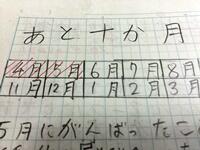 あと十か月
4月 5月 6月 7月 8月
11月 12月 1月 2月 3月
5月にがんばったこ